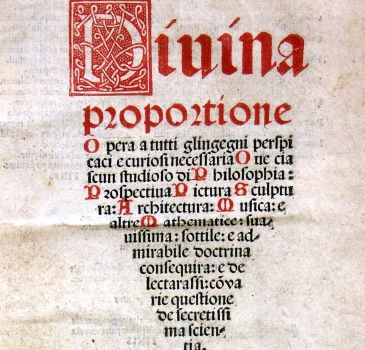 Diuina
proportione
Opera a tutti glingegni perspi
caci e curiosi necessaria Oue cia
scun studioso di Philosophia:
Prospectiua Pictura Sculptu
ra: Architectura: Musica: e
altre Mathematice: sua
uissima: sottile: e ad
mirabile doctrina
consequira: e de
lectarassi: cōva
rie questione
de secretissi
ma scien
tia.